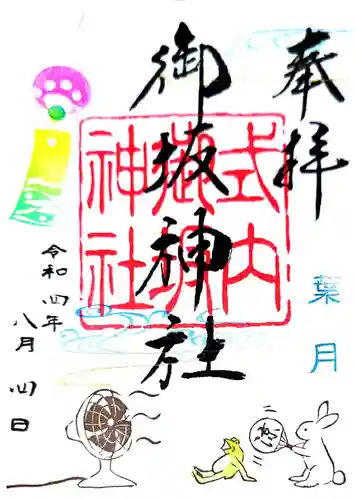 奉拝
葉月
御坂神社
式内
御坂
神社
令和四年
八月四日